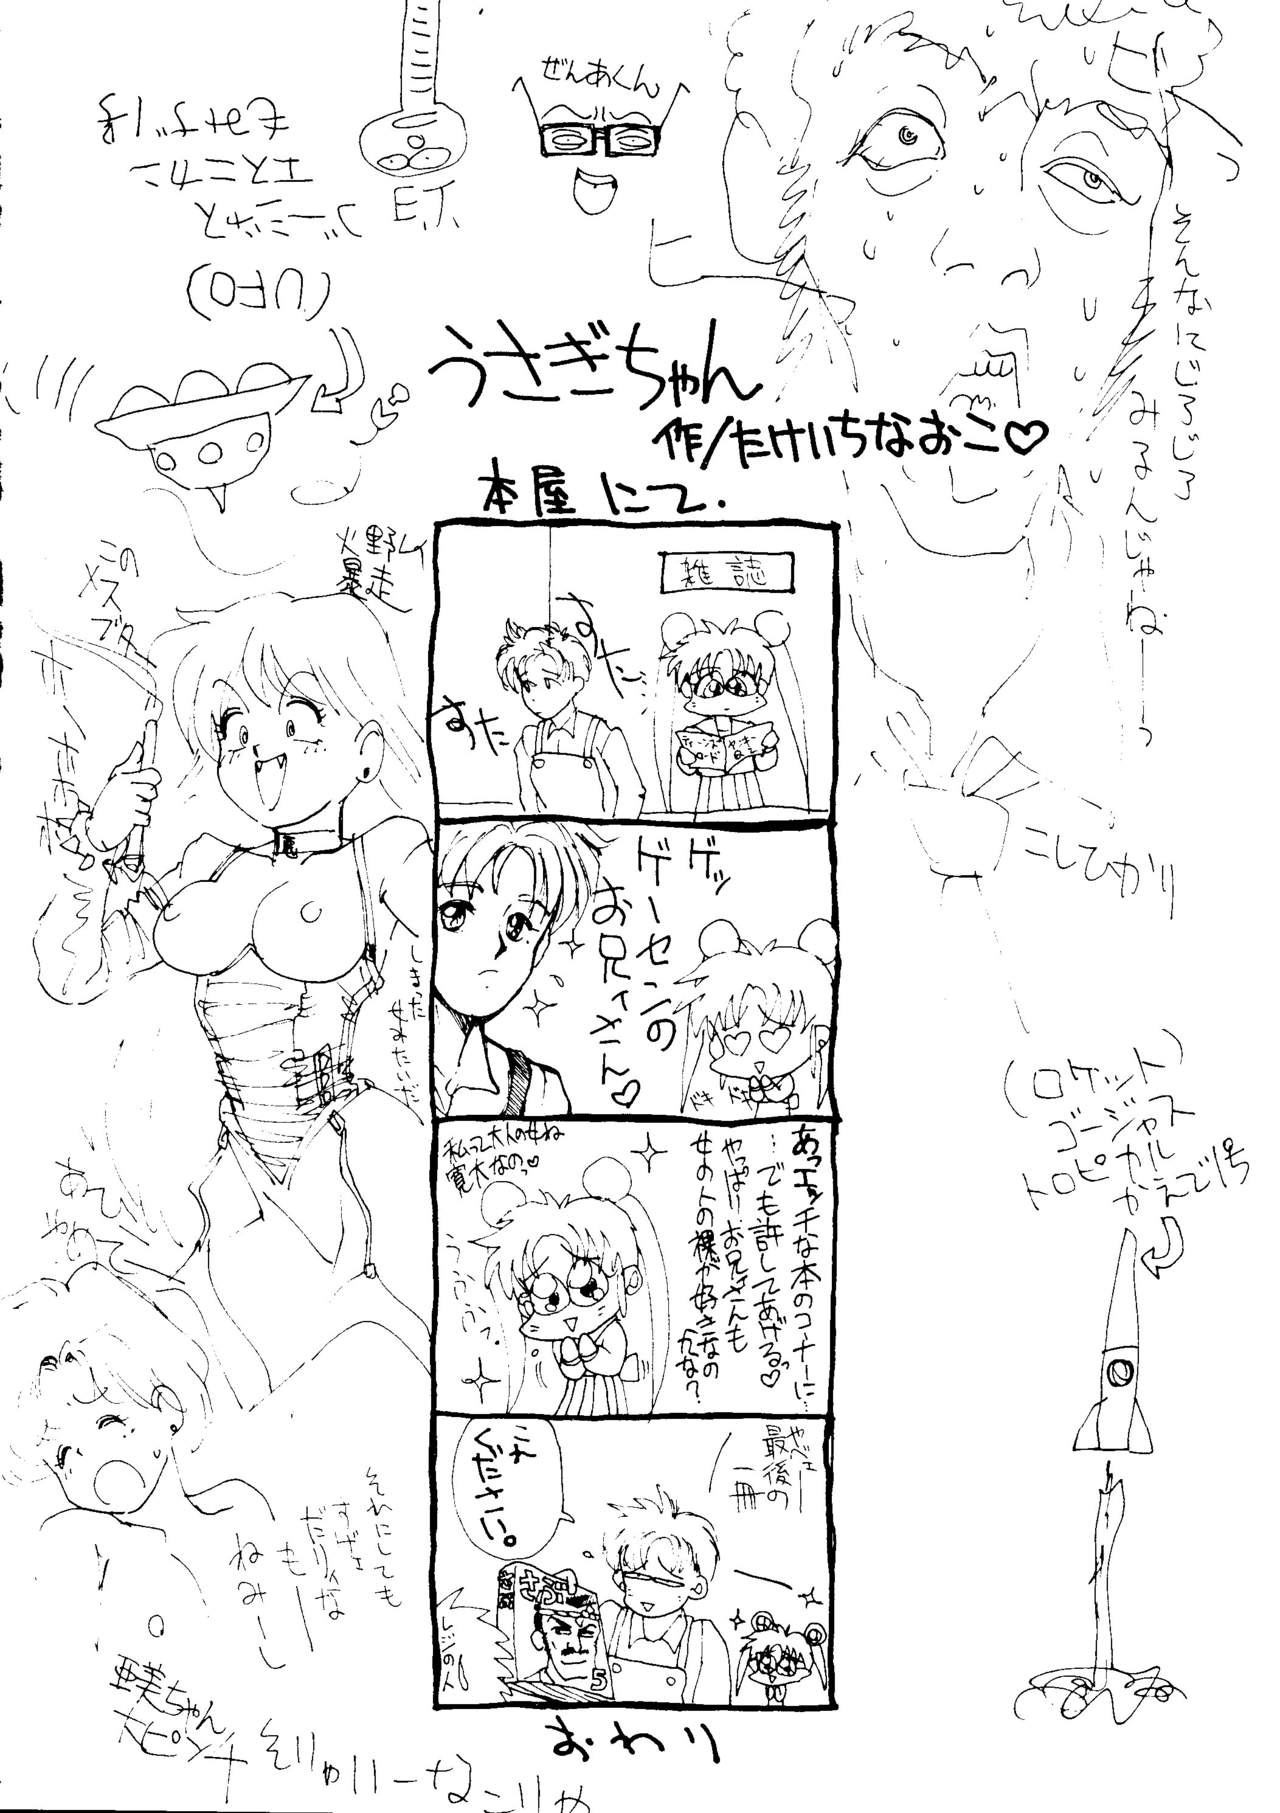 ぜんあくん
E.T.
(UFO)
そんなにじろじろ
みるんじゃねーーっ
うさぎちゃん
作/たけいちなおこ♡
本屋にて.
雑誌
すた…
すた
ゲゲッ
ゲーセンの
お兄イさん♡
ドキドキ
あっエッチな本のコーナーに…
…でも許してあげるっ♡
やっぱりお兄さんも
女の人の裸が好きなの
かな?
私って大人の女ね
寛大なのっ♡
うふふっ.
やべェー
最後の
一冊
これ
ください。
さぶ
5
レジの人
おわり
火野レイ
暴走
このメスブター
しまった
女みたいだ
それにしても
すげェ
だりィな
もーー
ねみーし
亜美ちゃん
大ピンチ
こしひかり
(ロケット)
ゴージャス
トロピカル
かえで1号